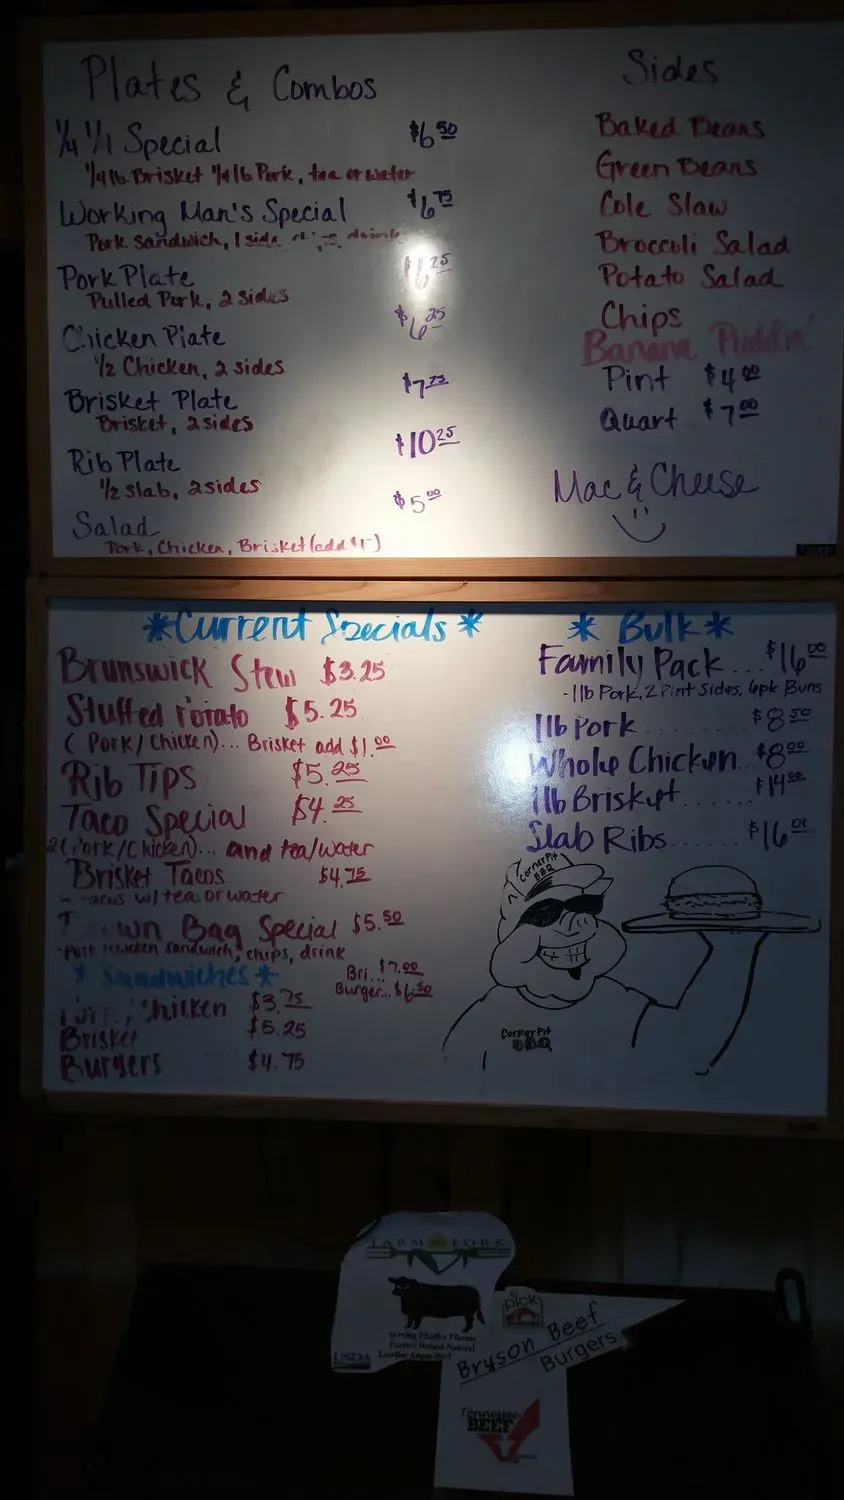 Plates & Combos
1/4 1/1 Special $6.50
1/4 lb. Brisket 1/4 lb Pork, tea or water
Working Man's Special $6.75
Pork sandwich, 1 side drink
Pork Plate $6.25
Pulled Pork, 2 sides
Chicken Plate $6.25
1/2 Chicken, 2 sides
Brisket Plate $7.75
Brisket, 2 sides
Rib Plate $10.25
1/2 slab, 2 sides
Salad $5.00
Pork, Chicken, Brisket (add $1-)
Sides
Baked Beans
Green Beans
Cole Slaw
Broccoli Salad
Potato Salad
Chips
Banana Puddin'
Pint $4.00
Quart $7.00
Mac & Cheese
*Current Specials*
Brunswick Stew $3.25
Stuffed Potato $5.25
(Pork/Chicken)... Brisket add $1.00
Rib Tips $5.25
Taco Special $4.25
2 (Pork/Chicken)... and tea/water
Brisket Tacos $4.75
tacos w/ tea or water
Bag Special $5.50
chicken sandwich, chips, drink
Bri... $7.00
Burger... $6.50
*Sandwiches*
Chicken $3.75
Brisket $5.25
Burgers $4.75
*Bulk*
Family Pack... $16.00
-1lb Pork, 2 Pint Sides, 6pk Buns
1lb Pork........ $8.50
Whole Chicken.. $8.00
1lb Brisket...... $14.00
Slab Ribs...... $16.00
Corner Pit
BBQ
Corner Pit
BBQ
FARM FORK
Pasture Raised Natural
USDA
pick
Bryson Beef
Burgers.
Tennessee
BEEF